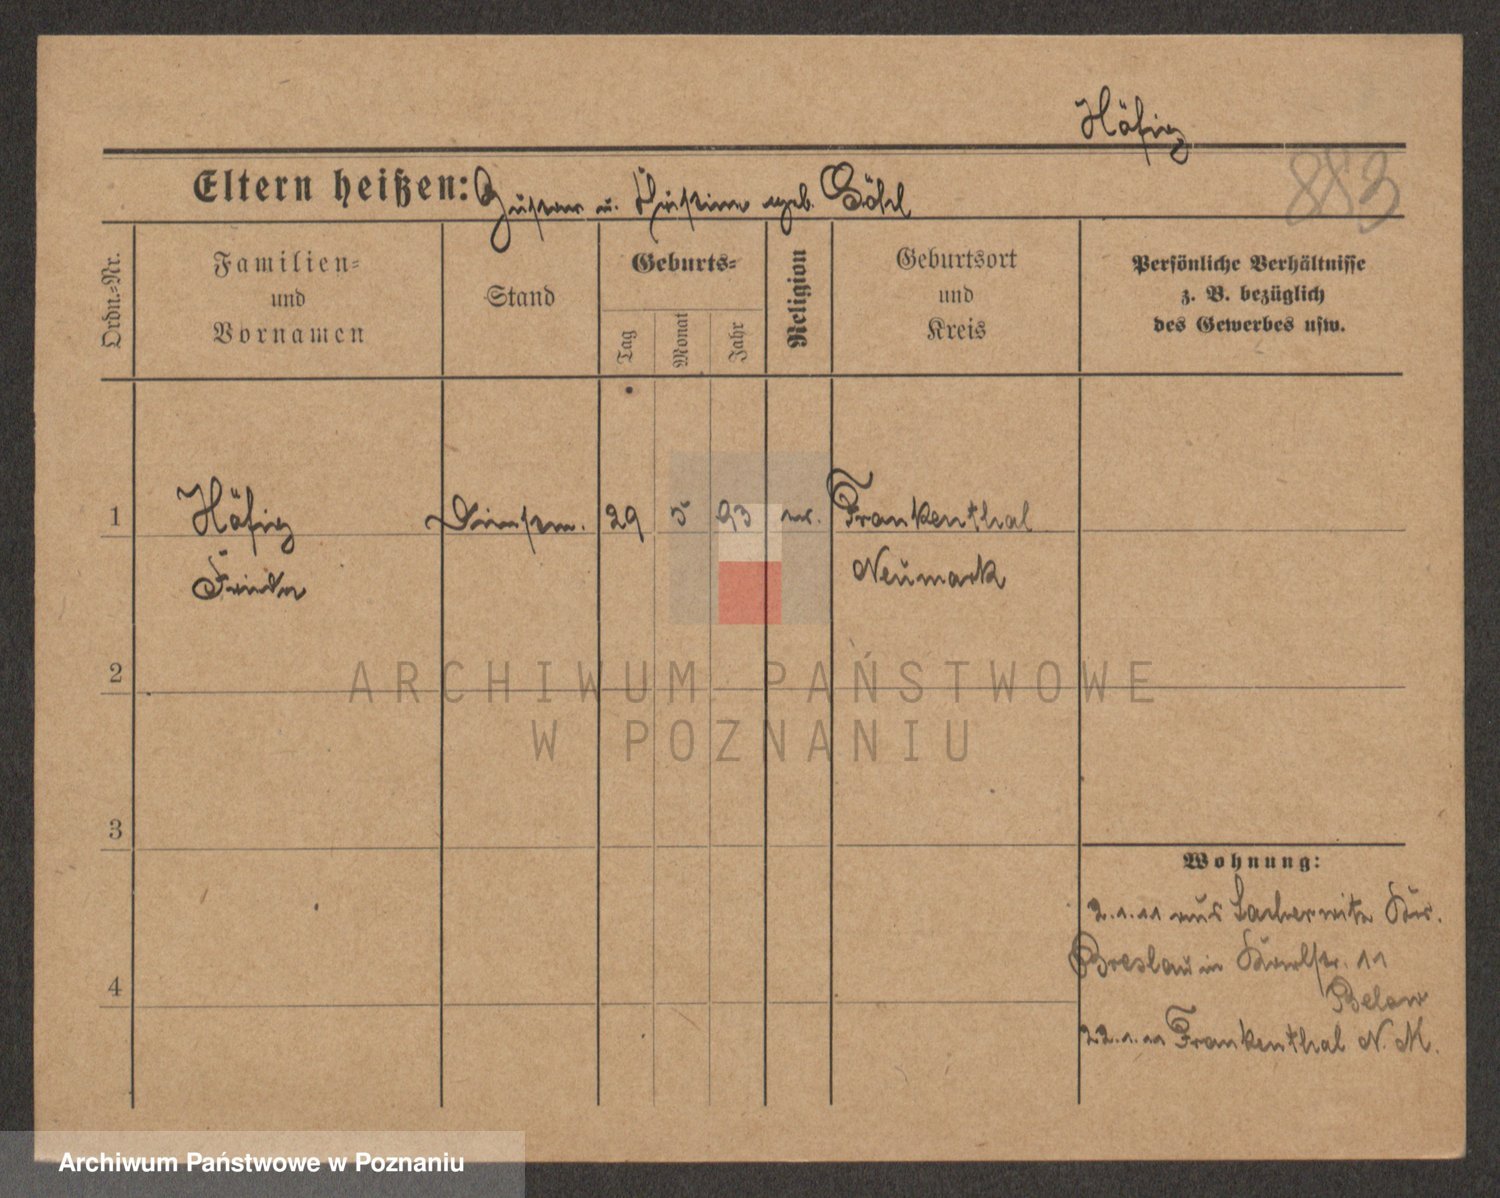 Häfig
883
Eltern heißen: Gustav u. Christine geb. Gösel
Ordn.-Nr.
Familien-
und
Vornamen
Stand
Geburts-
Tag
Monat
Jahr
Religion
Geburtsort
und
Kreis
Persönliche Verhältnisse
z. B. bezüglich
des Gewerbes usw.
1 Häfig Dienstm. 29 5 93 ev. Frankenthal
Frieda Neumark
2
ARCHIWUM PAŃSTWOWE
W POZNANIU
3
Wohnung:
2.1.11 aus Krs.
Breslau in 11
4
Below
22.1.11 Frankenthal N. M.
Archiwum Państwowe w Poznaniu